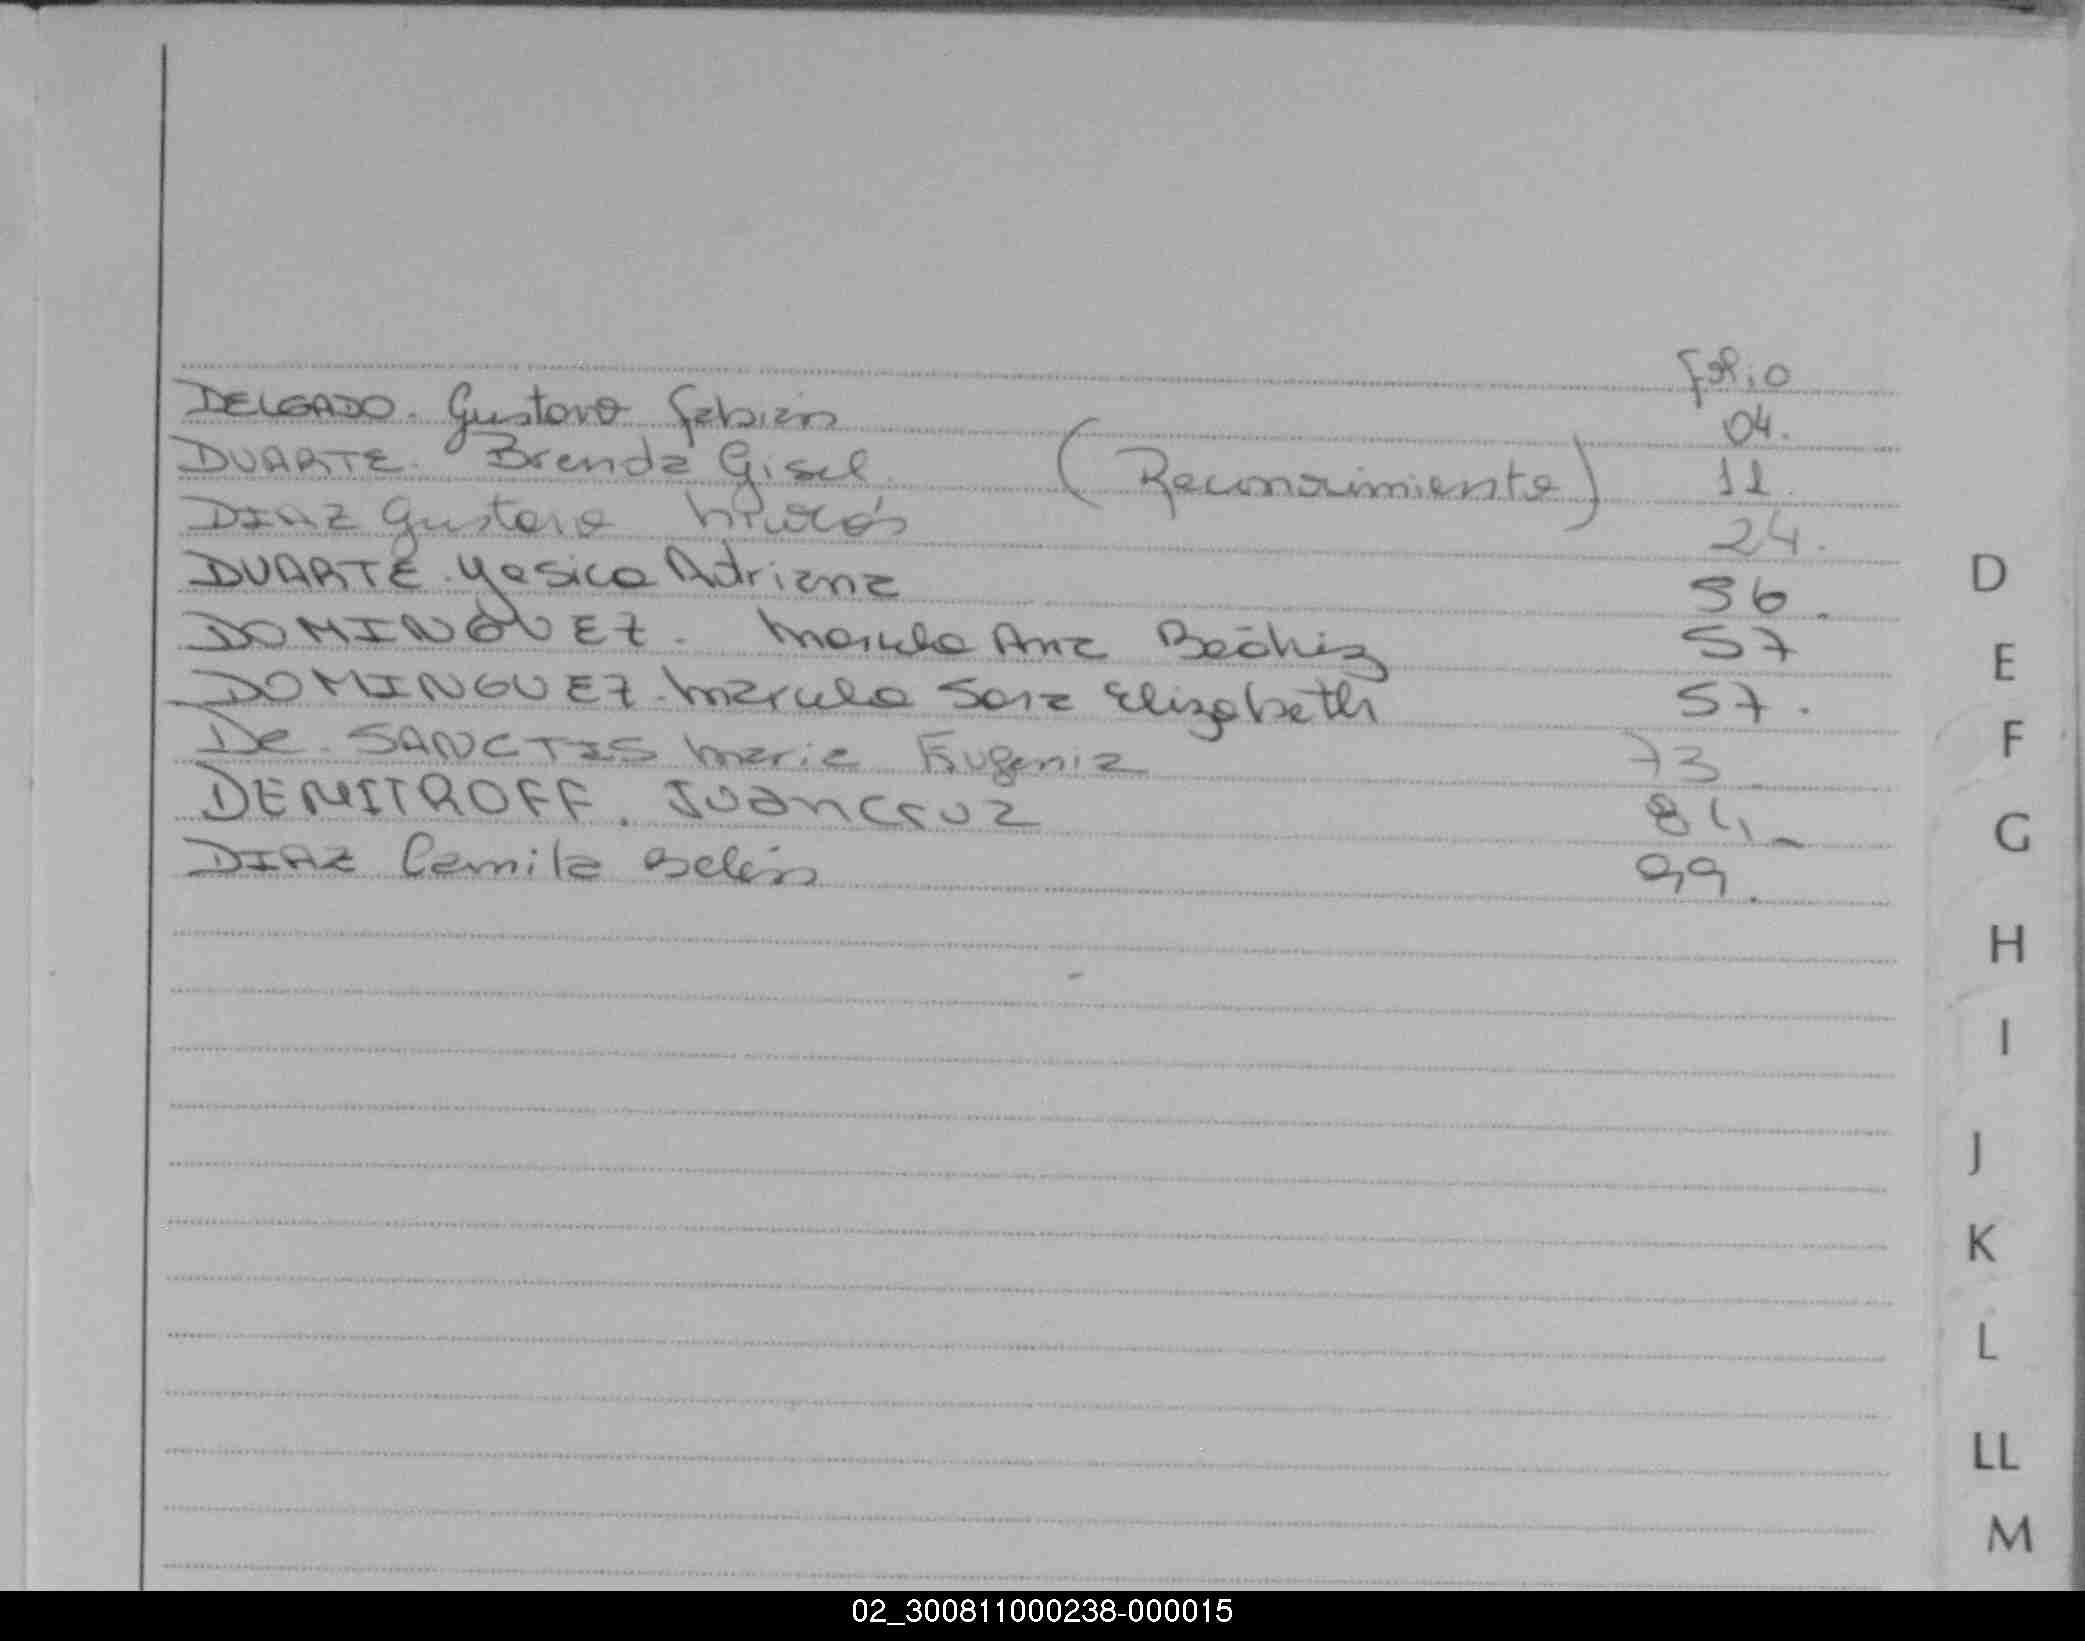 folio
DELGADO. Gustavo Fabián 04.
DUARTE. Brenda Gisel (Reconocimiento) 11.
DIAZ Gustavo Nicolás 24.
DUARTE. Yesica Adriana 56.
DOMINGUEZ. Ana Beatriz 57
DOMINGUEZ. Sara Elizabeth 57.
De SANCTIS Maria Eugenia 73
DEMITROFF. Juan Cruz 84.-
DIAZ Camila Belén 99.
D
E
F
G
H
I
J
K
L
LL
M
02_300811000238-000015